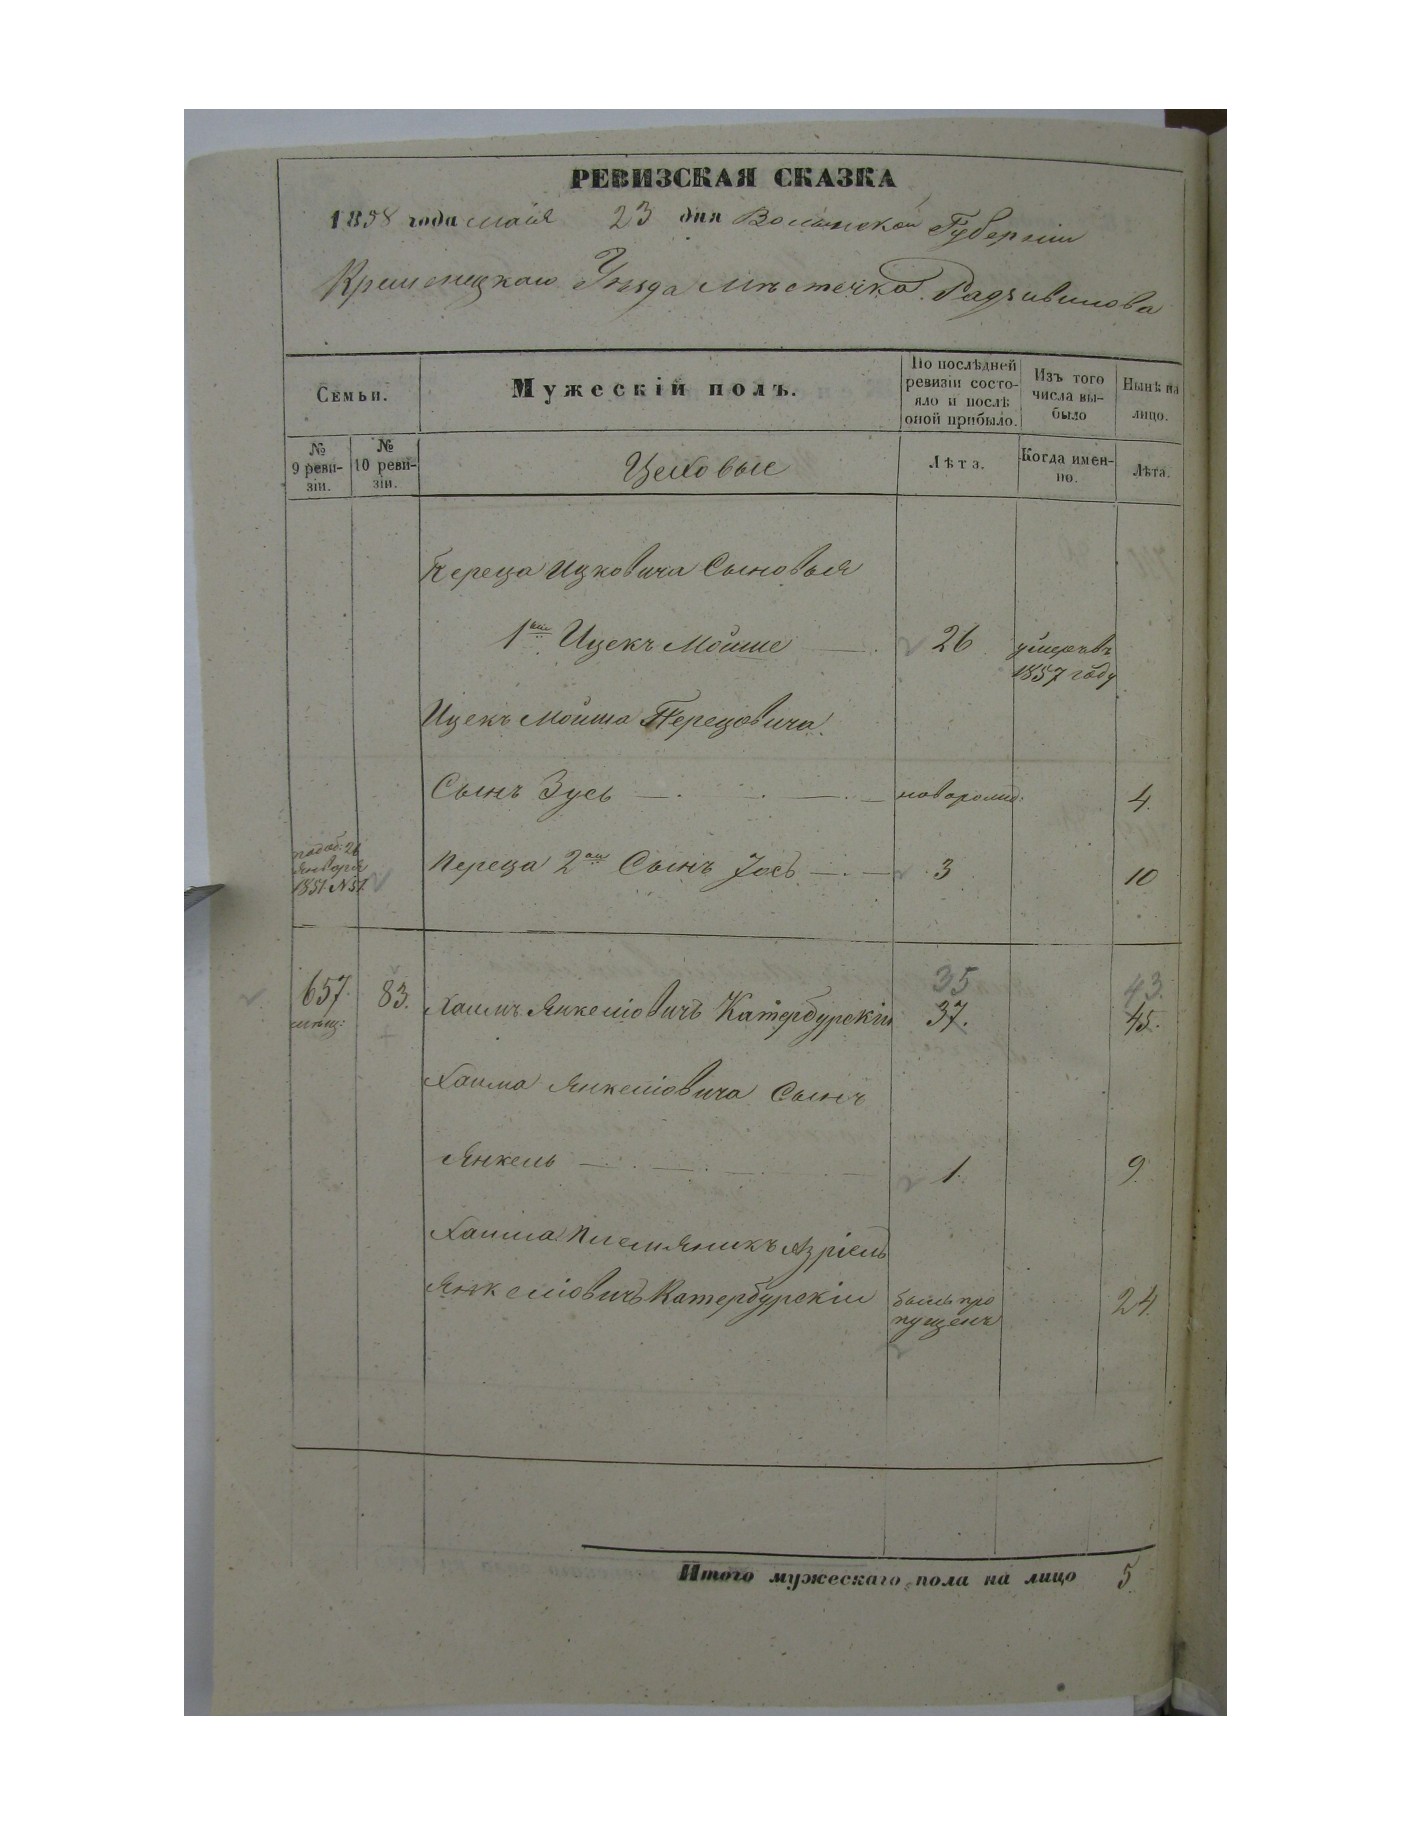 РЕВИЗСКАЯ СКАЗКА
1858 года майя 23 дня Волынской Губерніи
Кременецкаго Уѣзда Мѣстечка Радзивилова
Семьи.
Мужескій полъ.
По послѣдней ревизіи состояло и послѣ оной прибыло.
Изъ того числа выбыло
Нынѣ на лицо.
№ 9 ревизіи.
№ 10 ревизіи.
Цеховые
Лѣта.
Когда именно.
Лѣта.
Переца Ицковича Сыновья
1й Ицекъ Мойше 26 умеръ въ
1857 году
Ицекъ Мойша Перецовича
Сынъ Зусь новорожд. 4.
Января
1851 № 57
Переца 2й Сынъ Іось 3 10
35 43.
657. 83. Хаимъ Янкеліовичъ Катербурскій 37. 45.
мѣщ:
Хаима Янкеліовича Сынъ
Янкель 1. 9.
Хаима Племяникъ Азріель
Янкеліовичъ Катербурскій былъ про
пущенъ 24.
Итого мужескаго пола на лицо 5.